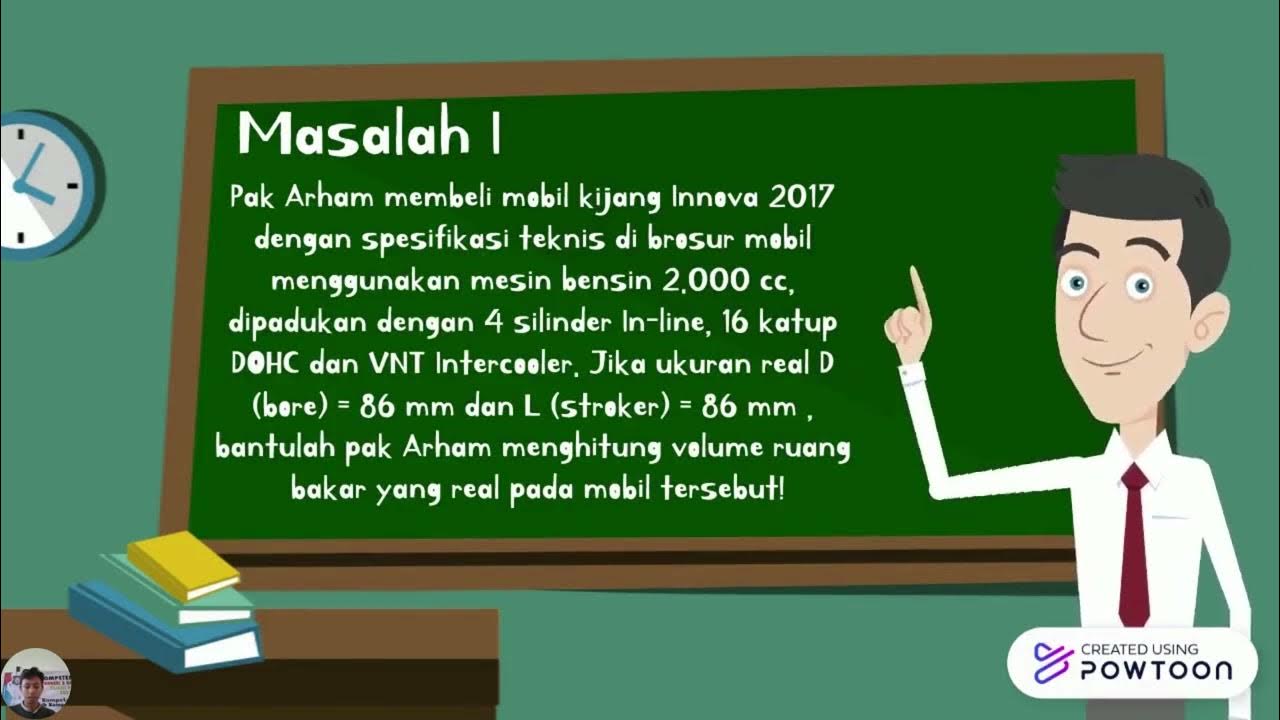 Masalah 1
Pak Arham membeli mobil kijang Innova 2017
dengan spesifikasi teknis di brosur mobil
menggunakan mesin bensin 2.000 cc,
dipadukan dengan 4 silinder In-line, 16 katup
DOHC dan VNT Intercooler. Jika ukuran real D
(bore) = 86 mm dan L (stroker) = 86 mm ,
bantulah pak Arham menghitung volume ruang
bakar yang real pada mobil tersebut!
CREATED USING
POWTOON